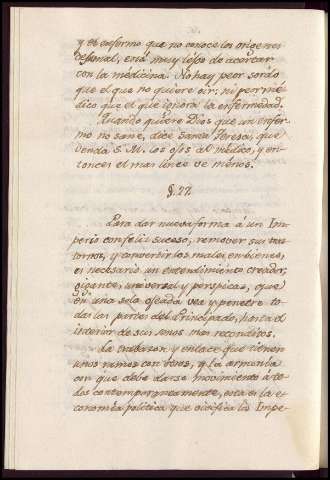 y el enfermo que no conoce los origenes
del mal, está muy léjos de acertar
con la médicina. No hay peor sordo
que el que no quiere oir: ni peor mé-
dico que el que ignora la enfermedad.
Quando quiere Dios que un enfer-
mo no sane, dice Santa Teresa, que
venda S. M. los ojos al médico, y en-
tonces el mas lince ve ménos.
§. 27.
Para dar nueva forma á un Im-
perio con feliz suceso, remover sus tras-
tornos, y convertir los males en bienes,
es necesario un entendimiento creador,
gigante, universal y perspicaz, que
en una sola ojeada vea y penetre to-
das las partes del Principado, hasta el
interior de sus senos mas reconditos.
La trabazon y enlace que tienen
unos ramos con otros, y la armonía
con que debe darse movimiento á to-
dos contemporaneamente, esta es la e-
conomía politica que vivifica los Impe-